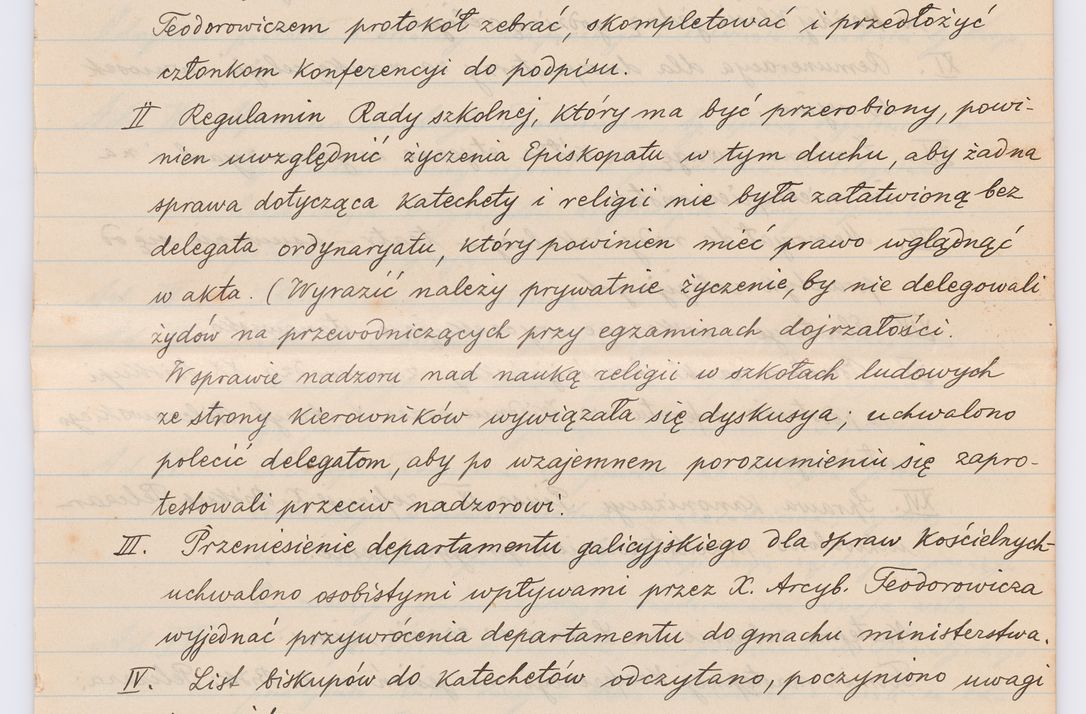 Teodorowiczem protokół zebrać, skompletować i przedłożyć
członkom konferencyi do podpisu.
II Regulamin Rady szkolnej, który ma być przerobiony, powi-
nien uwzględnić życzenia Episkopatu w tym duchu, aby żadna
sprawa dotycząca katechety i religii nie była załatwioną bez
delegata ordynaryatu, który powinien mieć prawo wglądnąć
w akta. (Wyrazić należy prywatnie życzenie, by nie delegowali
żydów na przewodniczących przy egzaminach dojrzałości.
W sprawie nadzoru nad nauką religii w szkołach ludowych
ze strony kierowników wywiązała się dyskusya; uchwalono
polecić delegatom, aby po wzajemnem porozumieniu się zapro-
testowali przeciw nadzorowi.
III. Przeniesienie departamentu galicyjskiego dla spraw kościelnych-
uchwalono osobistymi wpływami przez X. Arcyb. Teodorowicza
wyjednać przywrócenia departamentu do gmachu ministerstwa.
IV. List biskupów do katechetów odczytano, poczyniono uwagi